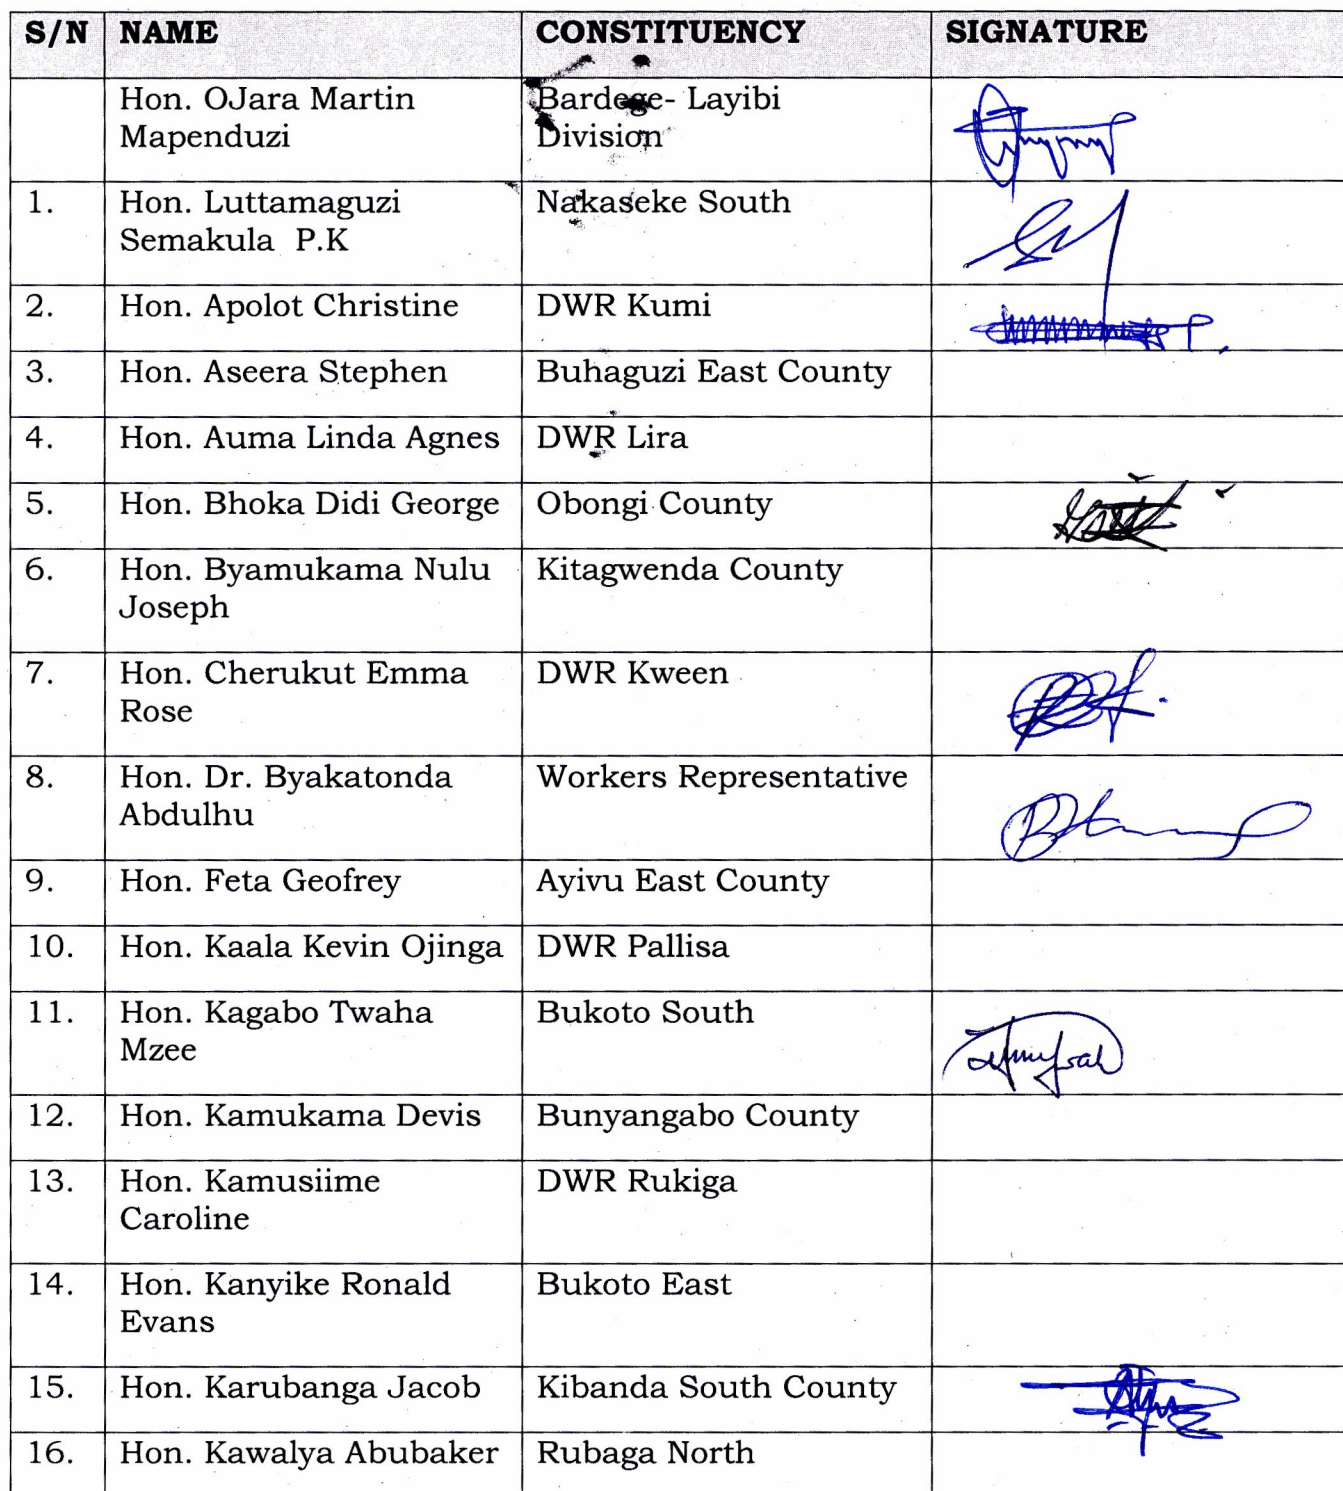 S/N NAME CONSTITUENCY SIGNATURE
Hon. OJara Martin Bardege- Layibi
Mapenduzi Division
1. Hon. Luttamaguzi Nakaseke South
Semakula P.K
2. Hon. Apolot Christine DWR Kumi
3. Hon. Aseera Stephen Buhaguzi East County
4. Hon. Auma Linda Agnes DWR Lira
5. Hon. Bhoka Didi George Obongi County
6. Hon. Byamukama Nulu Kitagwenda County
Joseph
7. Hon. Cherukut Emma DWR Kween
Rose
8. Hon. Dr. Byakatonda Workers Representative
Abdulhu
9. Hon. Feta Geofrey Ayivu East County
10. Hon. Kaala Kevin Ojinga DWR Pallisa
11. Hon. Kagabo Twaha Bukoto South
Mzee
12. Hon. Kamukama Devis Bunyangabo County
13. Hon. Kamusiime DWR Rukiga
Caroline
14. Hon. Kanyike Ronald Bukoto East
Evans
15. Hon. Karubanga Jacob Kibanda South County
16. Hon. Kawalya Abubaker Rubaga North